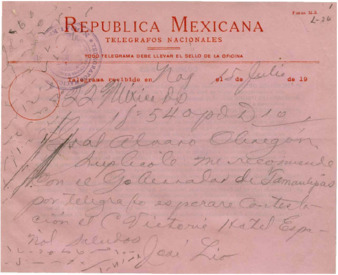 REPUBLICA MEXICANA
TELEGRAFOS NACIONALES
TODO TELEGRAMA DEBE LLEVAR EL SELLO DE LA OFICINA
Telegrama recibido en Nog el de Julio de 19
422 Mexico
Gral Alvaro Obregón
me recomiende
con el Gobernador de Tamaulipas
por telegrafo esperare contesta
ción el C Victoria Hotel Espa
ñol saludos
José